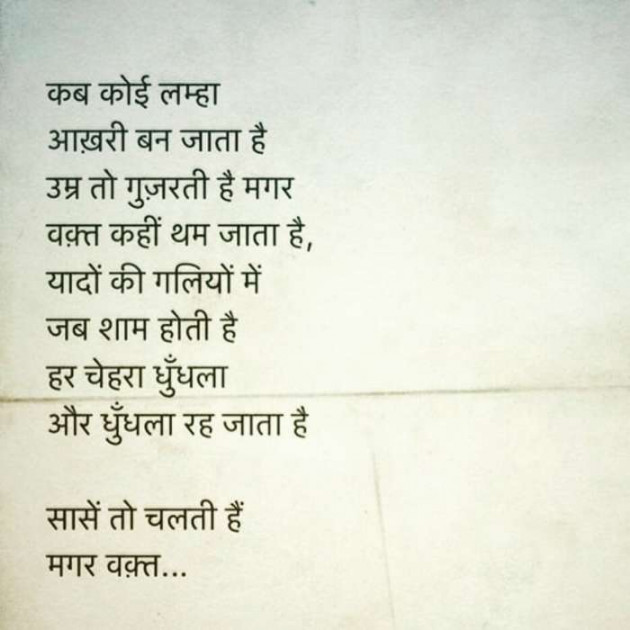 कब कोई लम्हा
आख़री बन जाता है
उम्र तो गुज़रती है मगर
वक़्त कहीं थम जाता है,
यादों की गलियों में
जब शाम होती है
हर चेहरा धुँधला
और धुँधला रह जाता है
सासें तो चलती हैं
मगर वक़्त...